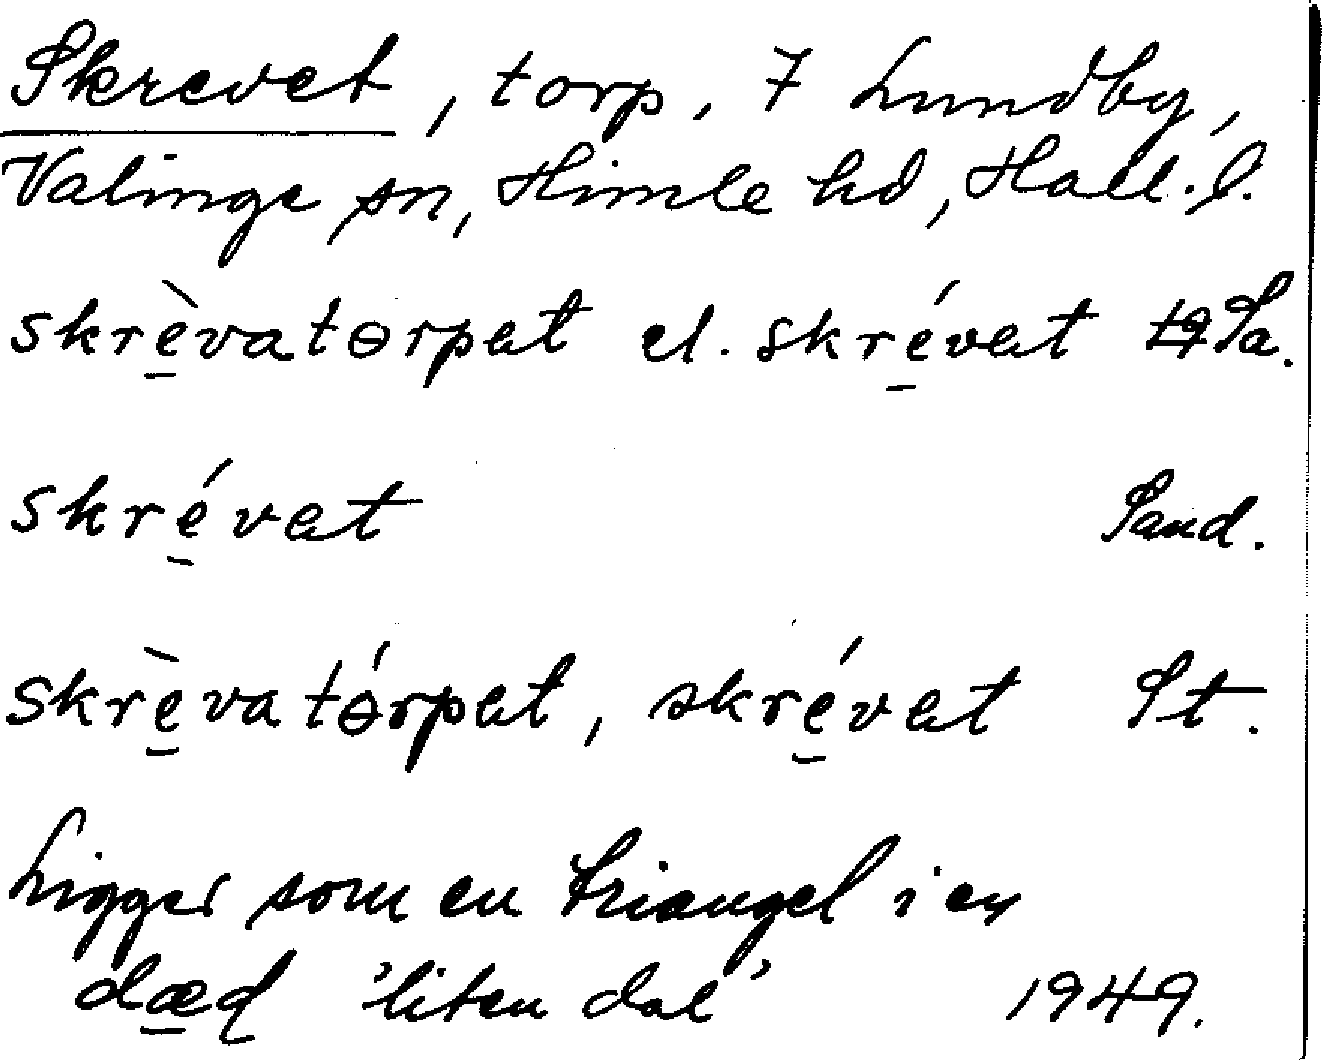 Skrevet, torp, 7 Lundby,
Valinge sn, Himle hd, Hall. l.
skrè̱vatɵrpət el. skré̱vət Sa.
skré̱vət Sand.
skrè̱vatɵ́rpət, skré̱vət St.
Ligger som en triangel i en
dæ̱ɖ 'liten dal' 1949.